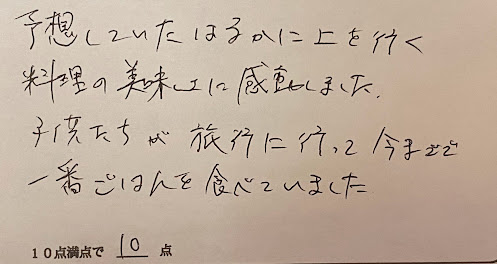 予想していたはるかに上を行く
料理の美味しさに感動しました。
子供たちが旅行に行って今までで
一番ごはんを食べていました
10点満点で 10 点